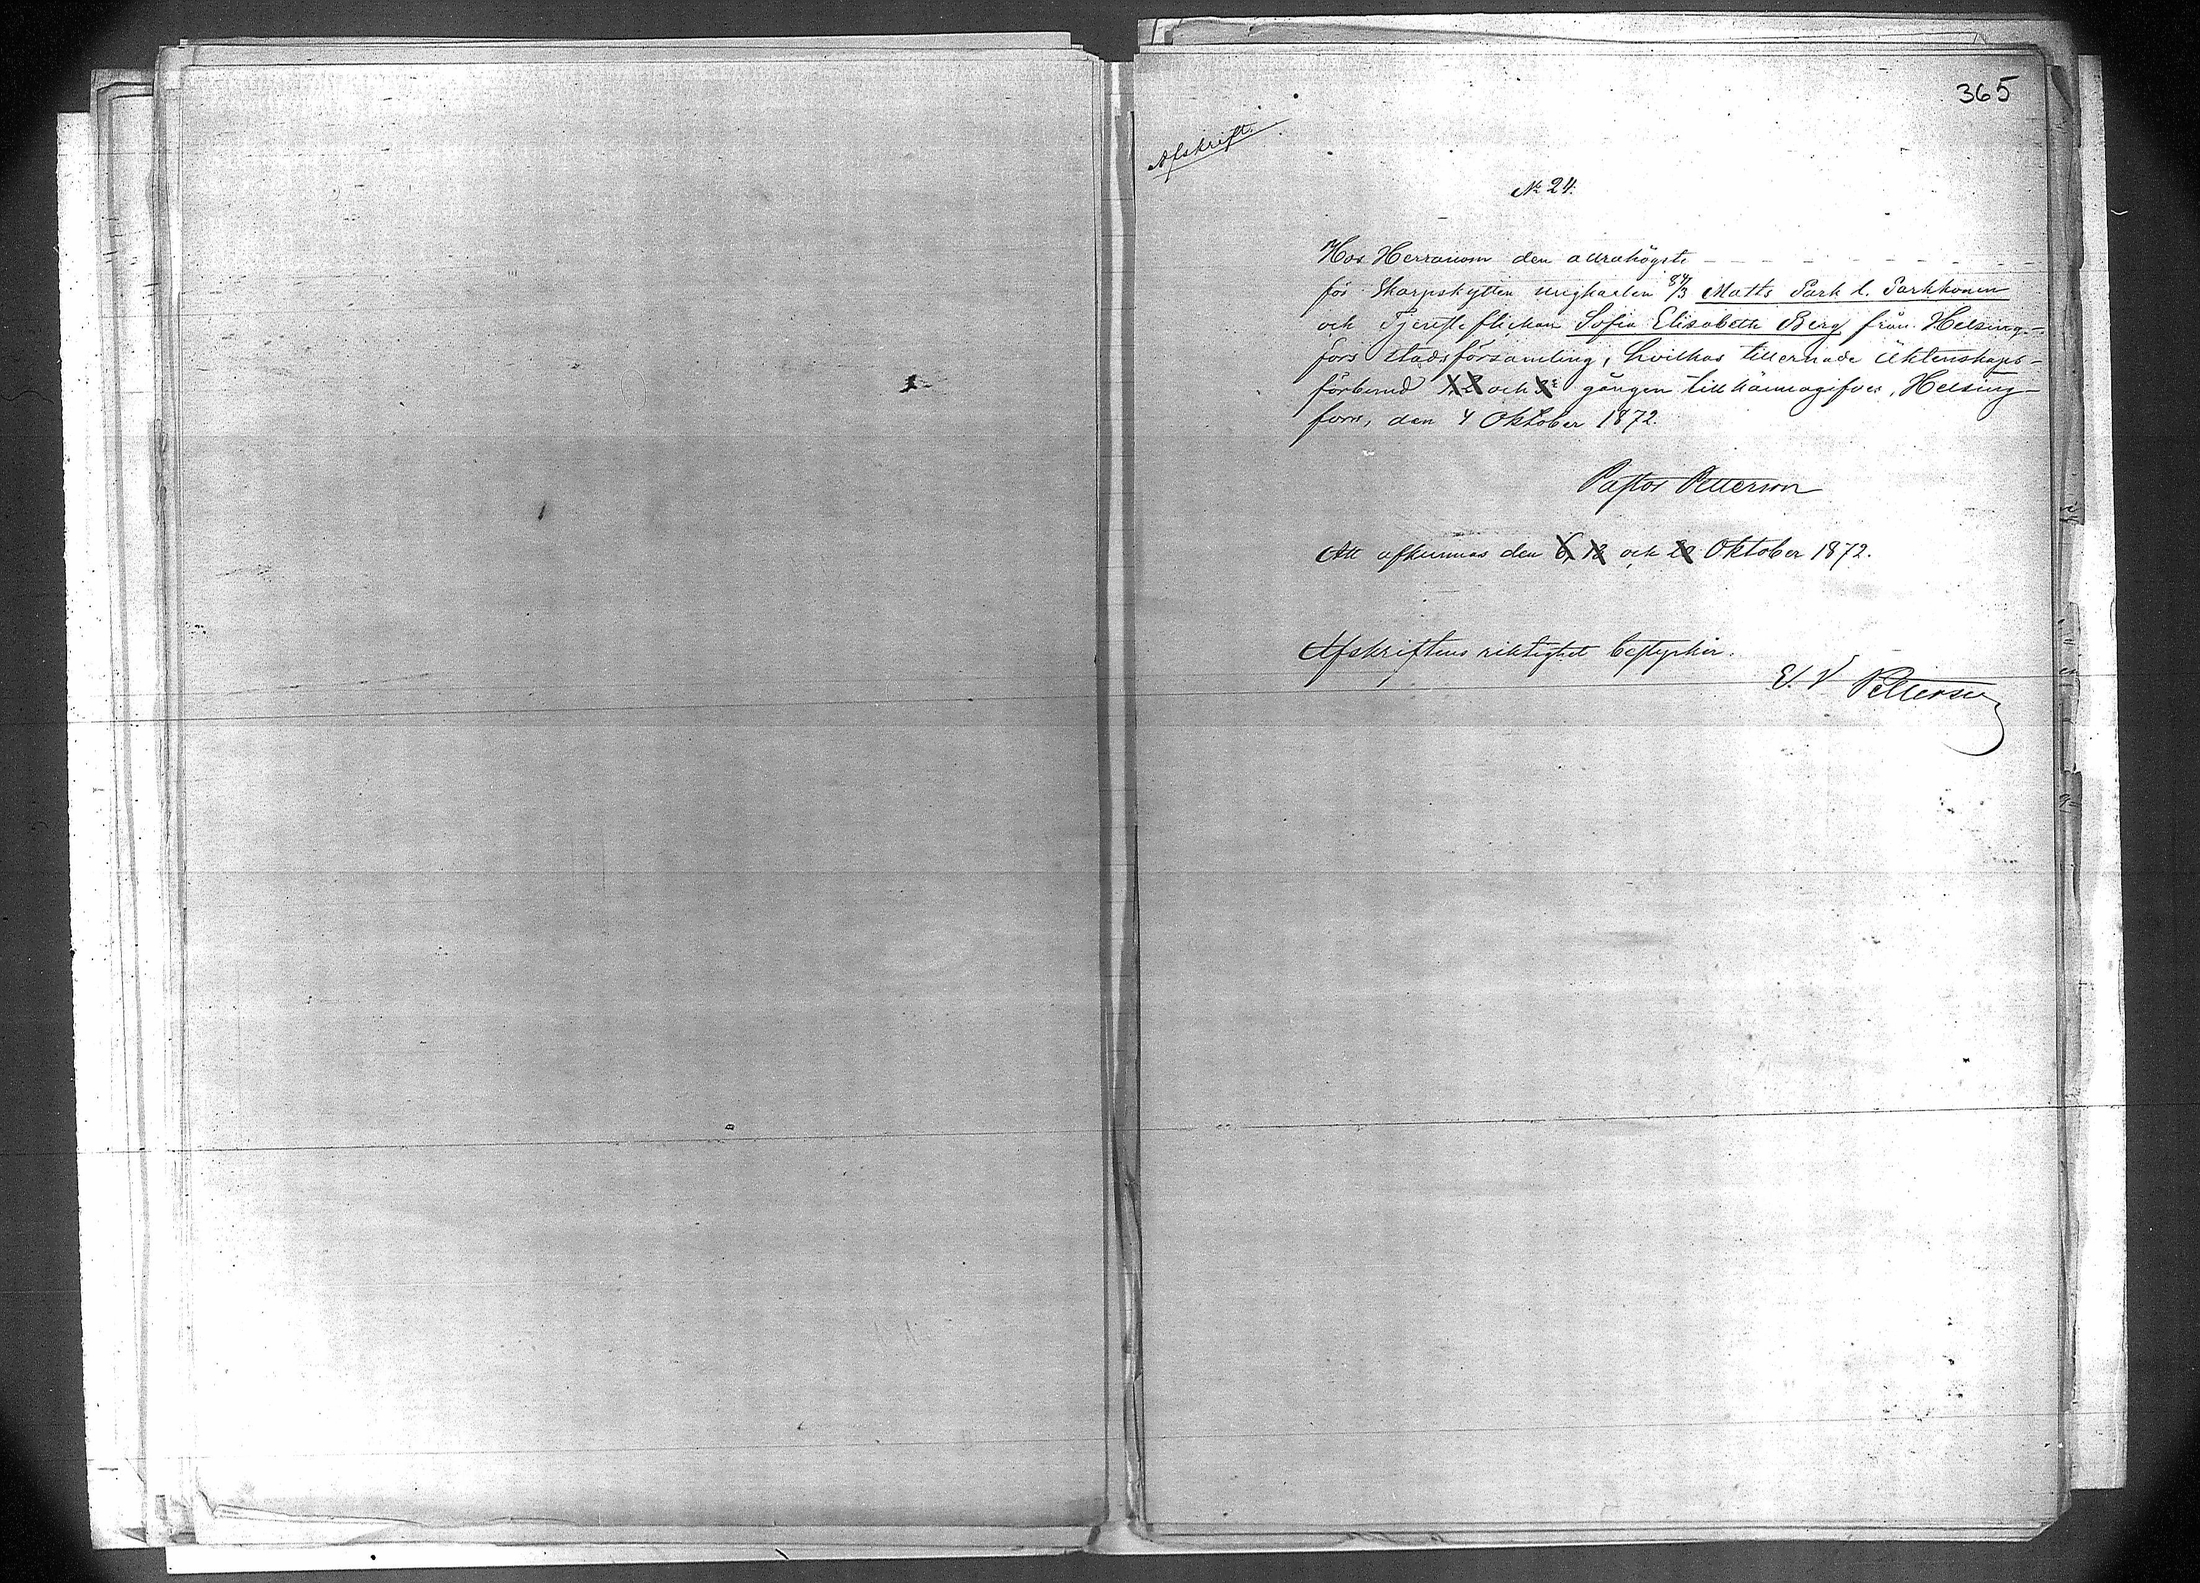 365
Afskrift.
No 24.
Hos Herranom den adrahögste
för Skarpskytten ungkarlen 84/3 Matts Park l. Parkkonen
och Tjensteflickan Sofia Elisabeth Berg från Helsing-
fors stadsförsamling, hvilkas tillernade äktenskaps-
förbund och gången tillkännagifves, Helsing-
fors, den 4 Oktober 1872.
Pastor Petterson
Att afkunnas den 6, 13 och 20 Oktober 1872.
Afskriftens riktighet bestyrker.
E. V Petterson